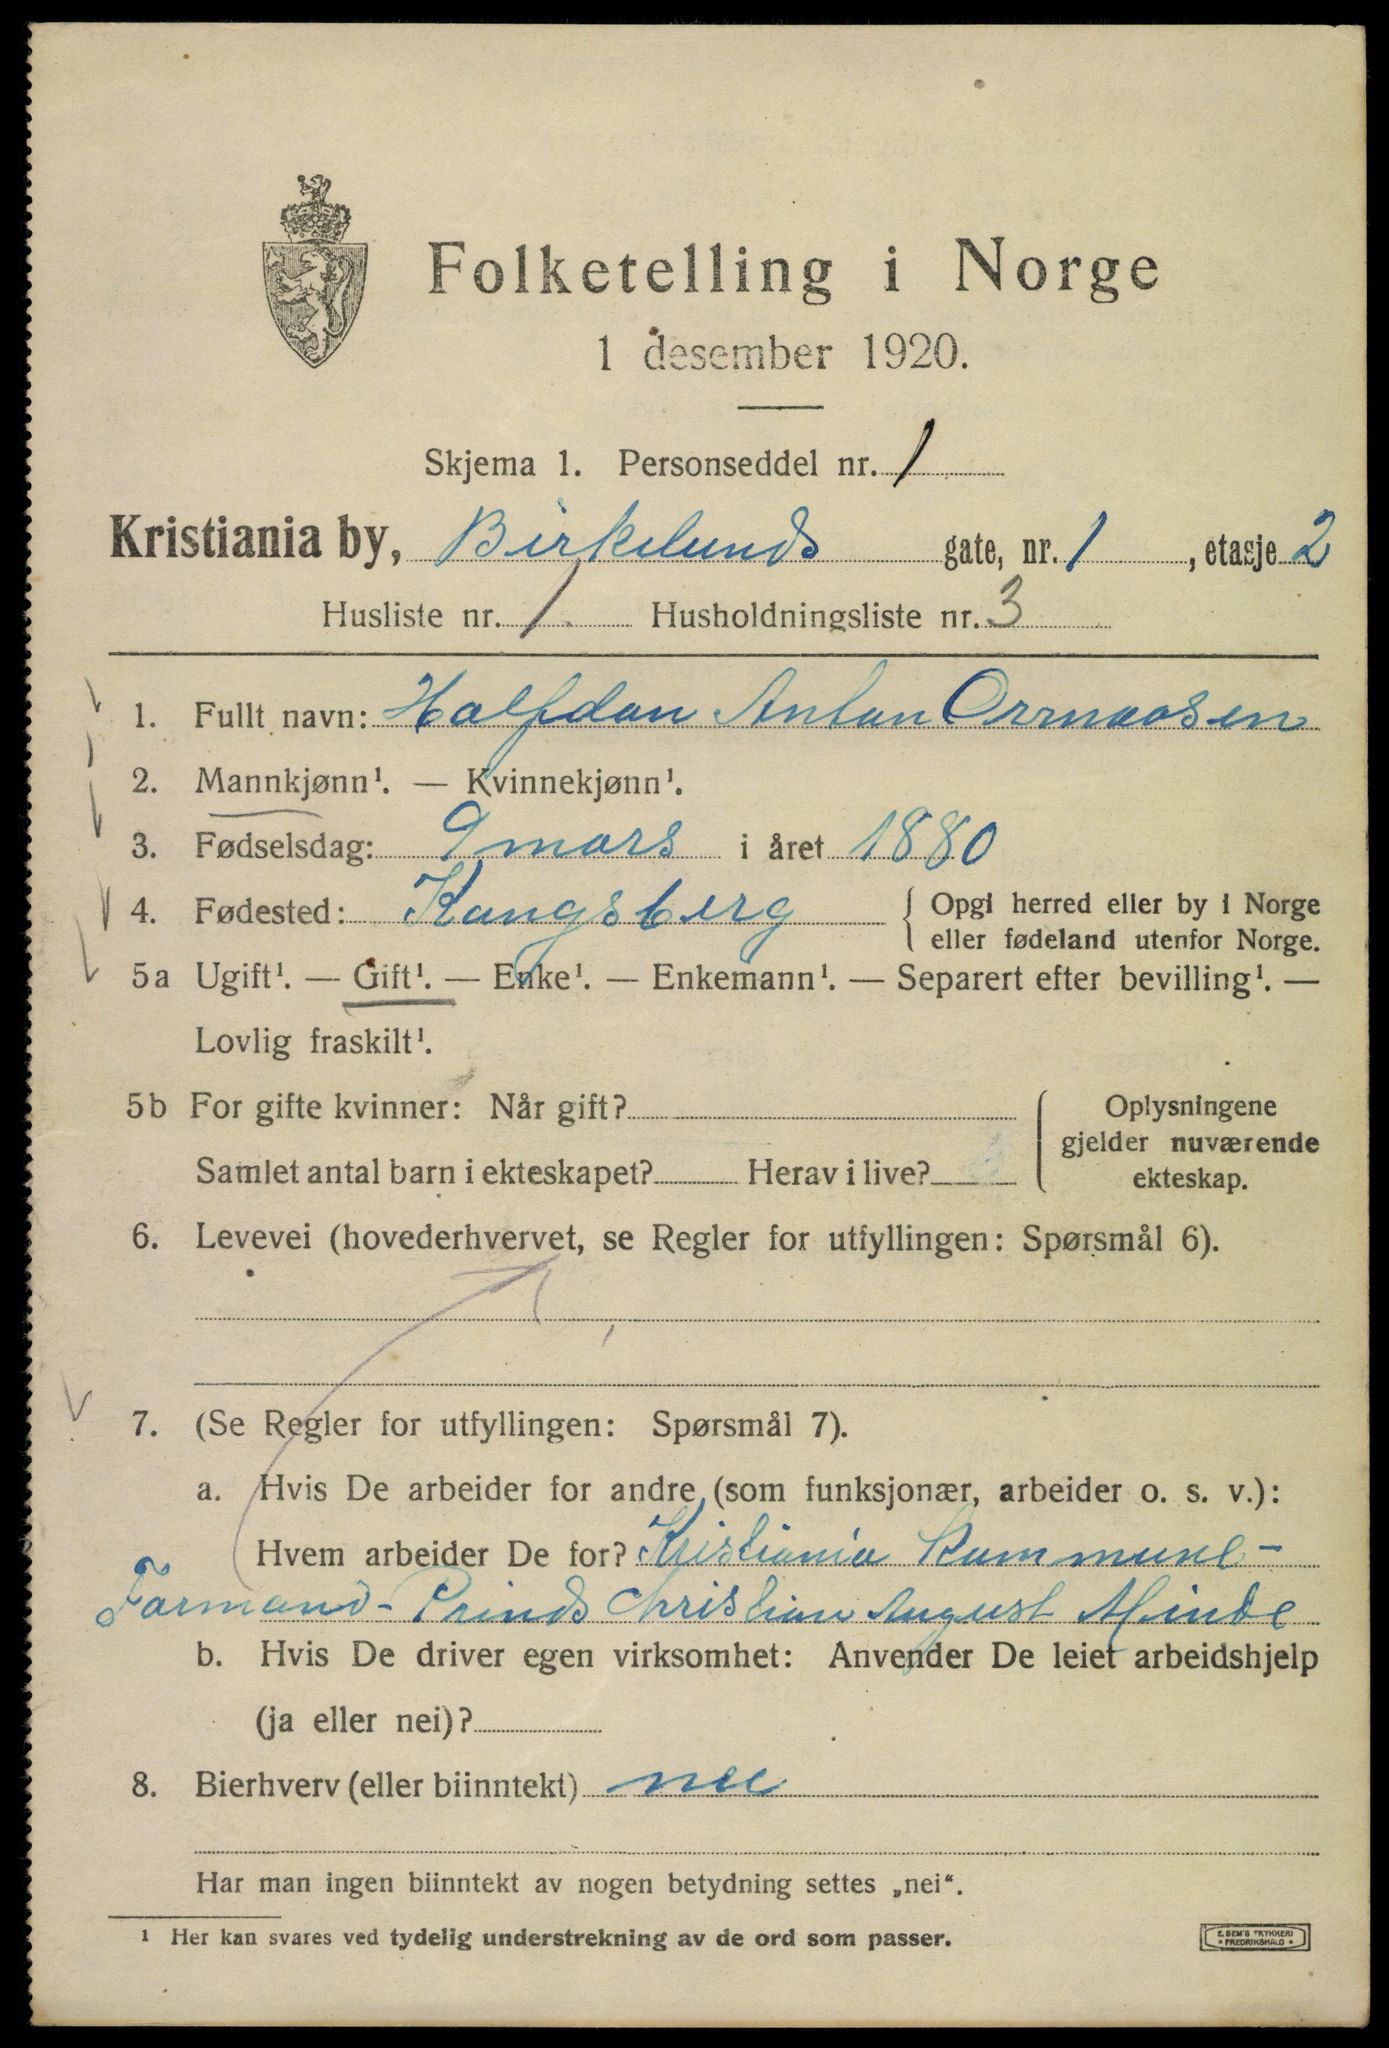 Folketelling i Norge
1 desember 1920.
Skjema 1. Personseddel nr. 1
Kristiania by, Birkelunds gate, nr. 1, etasje 2
Husliste nr. 1. Husholdningsliste nr. 3
1. Fullt navn: Halfdan Anton Ormaasen
2. Mannkjønn¹. — Kvinnekjønn¹.
3. Fødselsdag: 9 mars i året 1880
4. Fødested: Kongsberg { Opgi herred eller by i Norge
eller fødeland utenfor Norge.
5a Ugift¹. — Gift¹. — Enke¹. — Enkemann¹. — Separert efter bevilling¹. —
Lovlig fraskilt¹.
5b For gifte kvinner: Når gift? { Oplysningene
gjelder nuværende
Samlet antal barn i ekteskapet? Herav i live? ekteskap.
6. Levevei (hovederhvervet, se Regler for utfyllingen: Spørsmål 6).
7. (Se Regler for utfyllingen: Spørsmål 7).
a. Hvis De arbeider for andre (som funksjonær, arbeider o. s. v.):
Hvem arbeider De for? Kristiania Kommune -
Formand - Prinds Christian August Minde
b. Hvis De driver egen virksomhet: Anvender De leiet arbeidshjelp
(ja eller nei)?
8. Bierhverv (eller biinntekt) nei
Har man ingen biinntekt av nogen betydning settes „nei“.
¹ Her kan svares ved tydelig understrekning av de ord som passer.
E. SEM'S TRYKKERI
• FREDRIKSHALD •